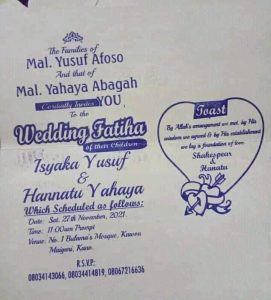 The Families of
Mal. Yusuf Afoso
And that of
Mal. Yahaya Abagah
Cordially Invites YOU
To the
Wedding Fatiha
of their Children
Isyaka Yusuf
&
Hannatu Yahaya
Which Scheduled as follows:
Date: Sat. 27th November, 2021
Time: 11:00am Prompt
Venue: No. 1 Bulama's Mosque, Kawon
Maigari, Kano.
R.S.V.P:
08034143066, 08034414819, 08067216636
Toast
By Allah's arrangement we met, by His
wisdom we agreed & by His establishment
we lay a foundation of love
Shakespear
&
Hanatu